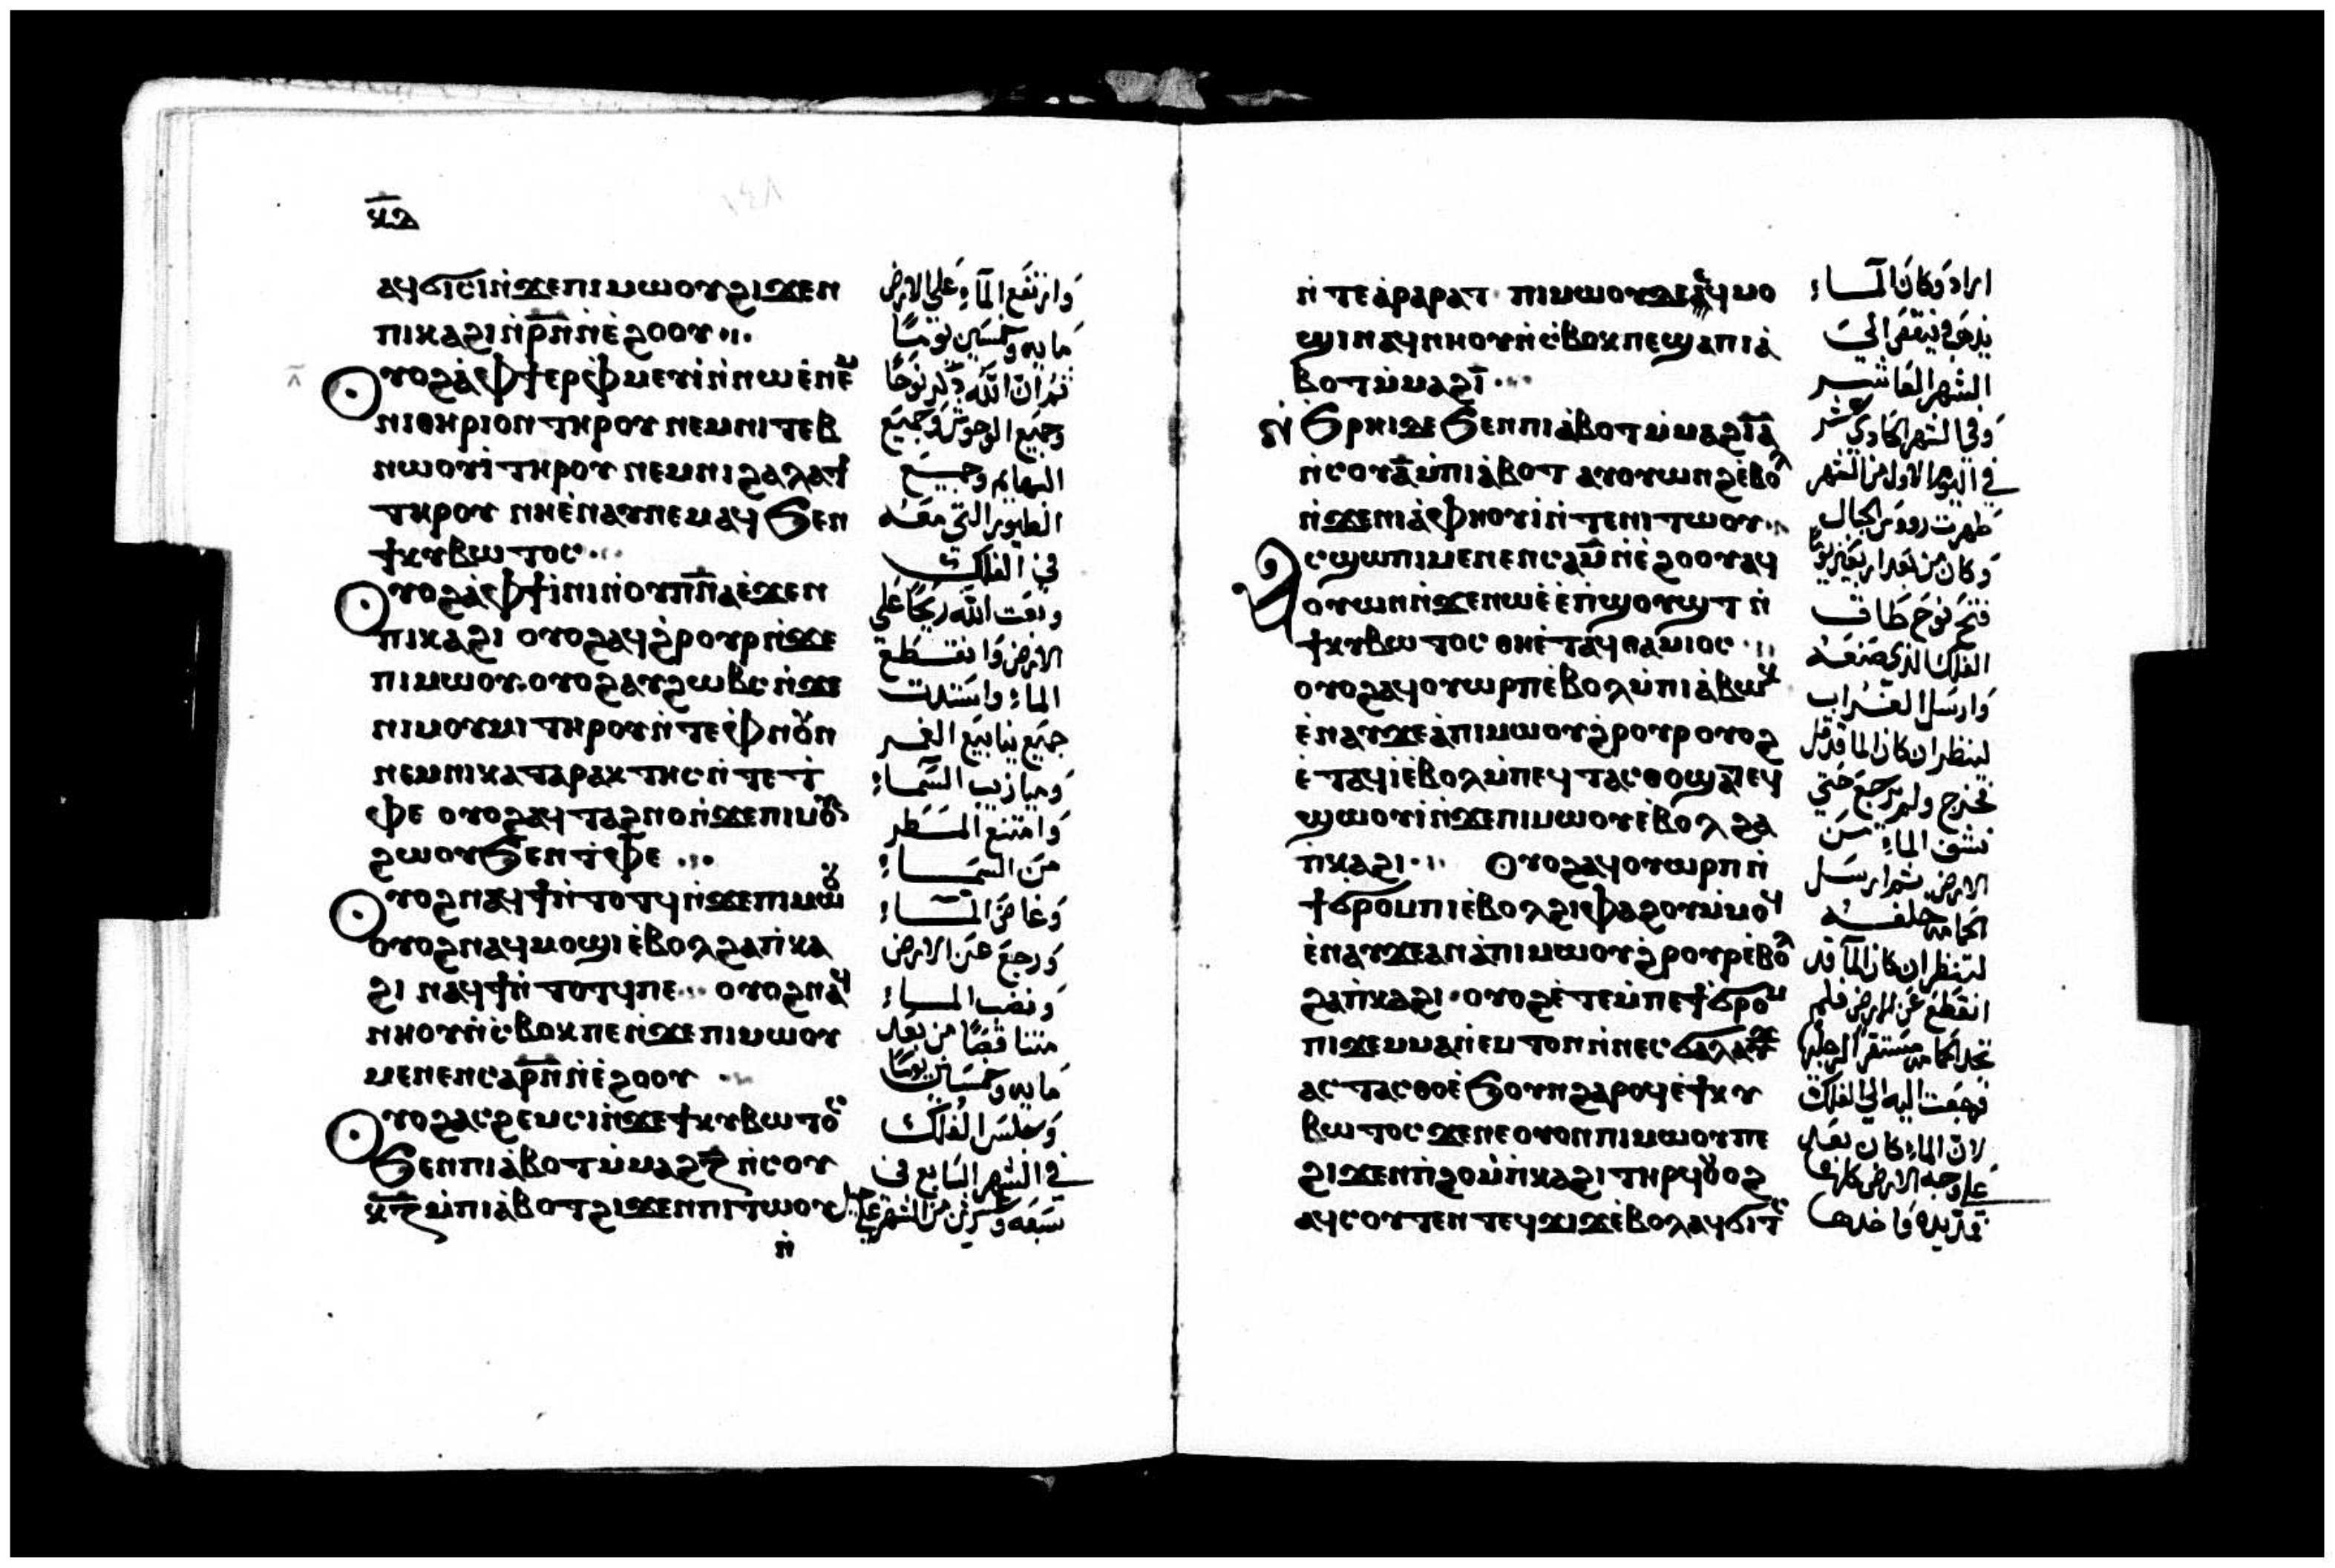 ⲁϥϭⲓⲥⲓ ⲛ̀ϫⲉⲡⲓⲙⲱⲟⲩ ϩⲓϫⲉⲛ
ⲡⲓⲕⲁϩⲓ ⲛ̀ⲣ̅ⲛ̅ ⲛ̀ⲉ̀ϩⲟⲟⲩ ⁘
ⲗ̅
Ⲟⲩⲟϩ ⲁ̀ⲫϯ ⲉⲣⲫⲙⲉⲩⲓ̀ ⲛ̀ⲛⲱⲉ̀ ⲛⲉ̀ⲙ
ⲛⲓⲑⲏⲣⲓⲟⲛ ⲧⲏⲣⲟⲩ ⲛⲉⲙ ⲛⲓⲧⲉⲃ
ⲛⲱⲟⲩⲓ̀ ⲧⲏⲣⲟⲩ ⲛⲉⲙ ⲛⲓϩⲁⲗⲁϯ
ⲧⲏⲣⲟⲩ ⲛⲏⲉ̀ⲛⲁⲩ ⲛⲉⲙⲁϥ ϧⲉⲛ
ϯⲕⲩⲃⲱⲧⲟⲥ ⁘
Ⲟⲩⲟϩ ⲁ̀ⲫϯ ⲓ̀ⲛⲓ ⲛ̀ⲟⲩⲡ̅ⲛ̅ⲁ̅ ⲉ̀ϫⲉⲛ
ⲡⲓⲕⲁϩⲓ ⲟⲩⲟϩ ⲁϥϩ̀ⲣⲟⲩⲣ ⲛ̀ϫⲉ
ⲡⲓⲙⲱⲟⲩ ⲟⲩⲟϩ ⲁⲩϩⲱⲃⲥ ⲛ̀ϫⲉ
ⲛⲓⲙⲟⲩⲙⲓ ⲧⲏⲣⲟⲩ ⲛ̀ⲧⲉ ⲫ̀ⲛⲟⲩⲛ
ⲛⲉⲙ ⲛⲓⲕⲁⲧⲁⲣⲁⲕⲧⲏⲥ ⲛ̀ⲧⲉ ⲧ̀
ⲫⲉ ⲟⲩⲟϩ ⲁϥⲧⲁϩⲛⲟ ⲛ̀ϫⲉⲡⲓⲙⲟⲩ
ϩⲱⲟⲩ ϧⲉⲛ ⲧ̀ⲫⲉ ⁘
Ⲟⲩⲟϩ ⲛⲁϥϯ ⲛ̀ⲧⲟⲧϥ ⲛ̀ϫⲉⲡⲓⲙⲱⲟⲩ
ⲟⲩⲟϩ ⲛⲁϥⲙⲟϣⲓ ⲉ̀ⲃⲟⲗ ϩⲁ ⲡ̀ⲕⲁ
ϩⲓ ⲛⲁϥϯ ⲛ̀ⲧⲟⲧϥ ⲡⲉ ⁘ ⲟⲩⲟϩ ⲛⲁϥ
ⲛⲏⲟⲩ ⲛ̀ⲥ̀ⲃⲟⲕ ⲡⲉ ⲛ̀ϫⲉⲡⲓⲙⲱⲟⲩ
ⲙⲉⲛⲉⲛⲥⲁ ⲣ̅ⲛ̅ ⲛ̀ⲉ̀ϩⲟⲟⲩ
Ⲟⲩⲟϩ ⲁⲥϩⲉⲙⲥⲓ ⲛ̀ϫⲉϯⲕⲩⲃⲱⲧⲟⲥ
ϧⲉⲛ ⲡⲓⲁ̀ⲃⲟⲧ ⲙ̀ⲙⲁϩ ⲍ̅ ⲛ̀ⲥⲟⲩ
ⲕ̅ⲍ̅ ⲙ̀ⲡⲓⲁ̀ⲃⲟⲧ ϩⲓϫⲉⲛ ⲡⲓⲧⲱⲟⲩ
ⲛ̀
وارتفع المآء على الارض
مايه وخمسين يومًا
ثم ان الله ذكر نوحًا
وجميع الوحوش وجميع
البهايم وجميع
الطيور التي معه
في الفلك
وبعث الله ريحًا على
الارض وانقطع
الماء واستدت
جميع ينابيع الغمر
وميازيب السماء
وامتنع المطر
من السماء
وغاض الماء
ورجع عن الارض
ونضب الماء
متناقصًا من بعد
مايه وخمسين يومًا
وجلس الفلك
في الشهر السابع في
سبعه وعشرين من الشهر على جبال
ⲛ̀ⲧⲉ ⲁ̀ⲣⲁⲣⲁⲧ · ⲡⲓⲙⲱⲟⲩ ϫⲉ ⲁϥⲙⲟ
ϣⲓ ⲛⲁϥⲛⲏⲟⲩ ⲛ̀ⲥ̀ⲃⲟⲕ ⲡⲉ ϣⲁ ⲡⲓⲁ̀
ⲃⲟⲧ ⲙ̀ⲙⲁϩ ⲓ̅ ⁘
ⲛ̀ϧⲣⲏⲓ ϫⲉ ϧⲉⲛ ⲡⲓⲁ̀ⲃⲟⲧ ⲙ̀ⲙⲁϩ ⲓ̅ⲁ̅
ⲛ̀ⲥⲟⲩ ⲁ̅ ⲙ̀ⲡⲓⲁ̀ⲃⲟⲧ ⲁⲩⲟⲩⲱⲛϩ ⲉ̀ⲃⲟⲗ
ⲛ̀ϫⲉⲛⲓⲁ̀ⲫⲏⲟⲩⲓ̀ ⲛ̀ⲧⲉ ⲛⲓⲧⲱⲟⲩ ⁘
Ⲁⲥϣⲱⲡⲓ ⲙⲉⲛⲉⲛⲥⲁ ⲙ̅ ⲛ̀ⲉ̀ϩⲟⲟⲩ ⲁϥ
ⲟⲩⲱⲛ ⲛ̀ϫⲉⲛⲱⲉ̀ ⲉ̀ⲡ̀ϣⲟⲩϣⲧ ⲛ̀
ϯⲕⲩⲃⲱⲧⲟⲥ ⲑⲏⲉ̀ⲧⲁϥⲑⲁⲙⲓⲟⲥ ⁘
ⲟⲩⲟϩ ⲁϥⲟⲩⲱⲣⲡ ⲉ̀ⲃⲟⲗ ⲙ̀ⲡⲓⲁ̀ⲃⲱⲕ
ⲉ̀ⲛⲁⲩ ϫⲉ ⲁ̀ⲡⲓⲙⲱⲟⲩ ϩ̀ⲣⲟⲩⲣ ⲟⲩⲟϩ
ⲉ̀ⲧⲁϥⲓ̀ ⲉ̀ⲃⲟⲗ ⲙ̀ⲡⲉϥⲧⲁⲥⲑⲟ ϣⲁⲧⲉϥ
ϣⲱⲟⲩⲓ̀ ⲛ̀ϫⲉⲡⲓⲙⲱⲟⲩ ⲉ̀ⲃⲟⲗ ϩⲁ
ⲡ̀ⲕⲁϩⲓ ⁘ Ⲟⲩⲟϩ ⲁϥⲟⲩⲱⲣⲡ ⲛ̀
ϯϭⲣⲟⲙⲡⲓ ⲉ̀ⲃⲟⲗ ϩⲓⲫⲁϩⲟⲩ ⲙ̀ⲙⲟϥ
ⲉ̀ⲛⲁⲩ ϫⲉ ⲁⲛ ⲁ̀ⲡⲓⲙⲱⲟⲩ ϩ̀ⲣⲟⲩⲣ ⲉ̀ⲃⲟⲗ
ϩⲁ ⲡ̀ⲕⲁϩⲓ · ⲟⲩⲟϩ ⲉ̀ⲧⲉ ⲙ̀ⲡⲉ ϯϭⲣⲟⲙ
ⲡⲓ ϫⲉⲙ ⲙⲁⲛ̀ⲉⲙⲧⲟⲛ ⲛ̀ⲛⲉⲥϭⲁⲗⲁⲩϫ
ⲁⲥⲧⲁⲥⲑⲟ ⲉ̀ϧⲟⲩⲛ ϩⲁⲣⲟϥ ⲉ̀ϯⲕⲩ
ⲃⲱⲧⲟⲥ ϫⲉ ⲛⲉ ⲟⲩⲟⲛ ⲡⲓⲙⲱⲟⲩ ⲡⲉ
ϩⲓϫⲉⲛ ⲡ̀ϩⲟ ⲙ̀ⲡ̀ⲕⲁϩⲓ ⲧⲏⲣϥ ⲟⲩⲟϩ
ⲁϥⲥⲟⲩⲧⲉⲛ ⲧⲉϥϫⲓϫ ⲉ̀ⲃⲟⲗ ⲁϥϭⲓⲧⲥ
اراراد وكان الماء
يذهب وينقص الى
الشهر العاشر
وفي الشهر الحادي عشر
في اليوم الاول من الشهر
ظهرت رووس الجبال
وكان من بعد اربعين يومًا
فتح نوح طاق
الفلك الذي صنعه
وارسل الغراب
لينظر ان كان الما قد قل
فخرج ولم يرجع حتى
نشف الماء من
الارض ثم ارسل
الحمامه خلفه
لتنظر ان كان المآ قد
انقطع عن الارض فلم
تجد الحمامه مستقرًا لرجليها
فرجعت اليه الى الفلك
لان الماء كان بعد
على وجه الارض كلها
فمد يده فاخذها